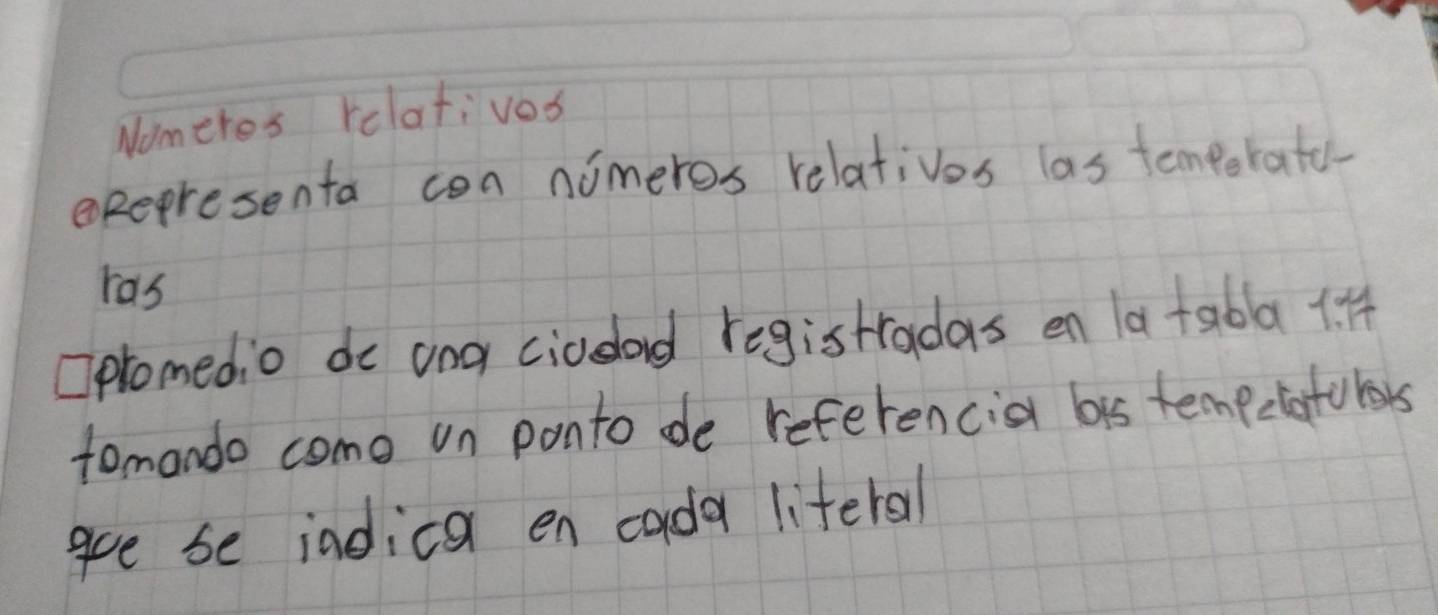 Numeros relativos
Representa con números relativos las temperatu-
ras
promedio de una ciudad registradas en la tabla
tomando como un punto de referencia las temperaturas
que se indica en cada literal